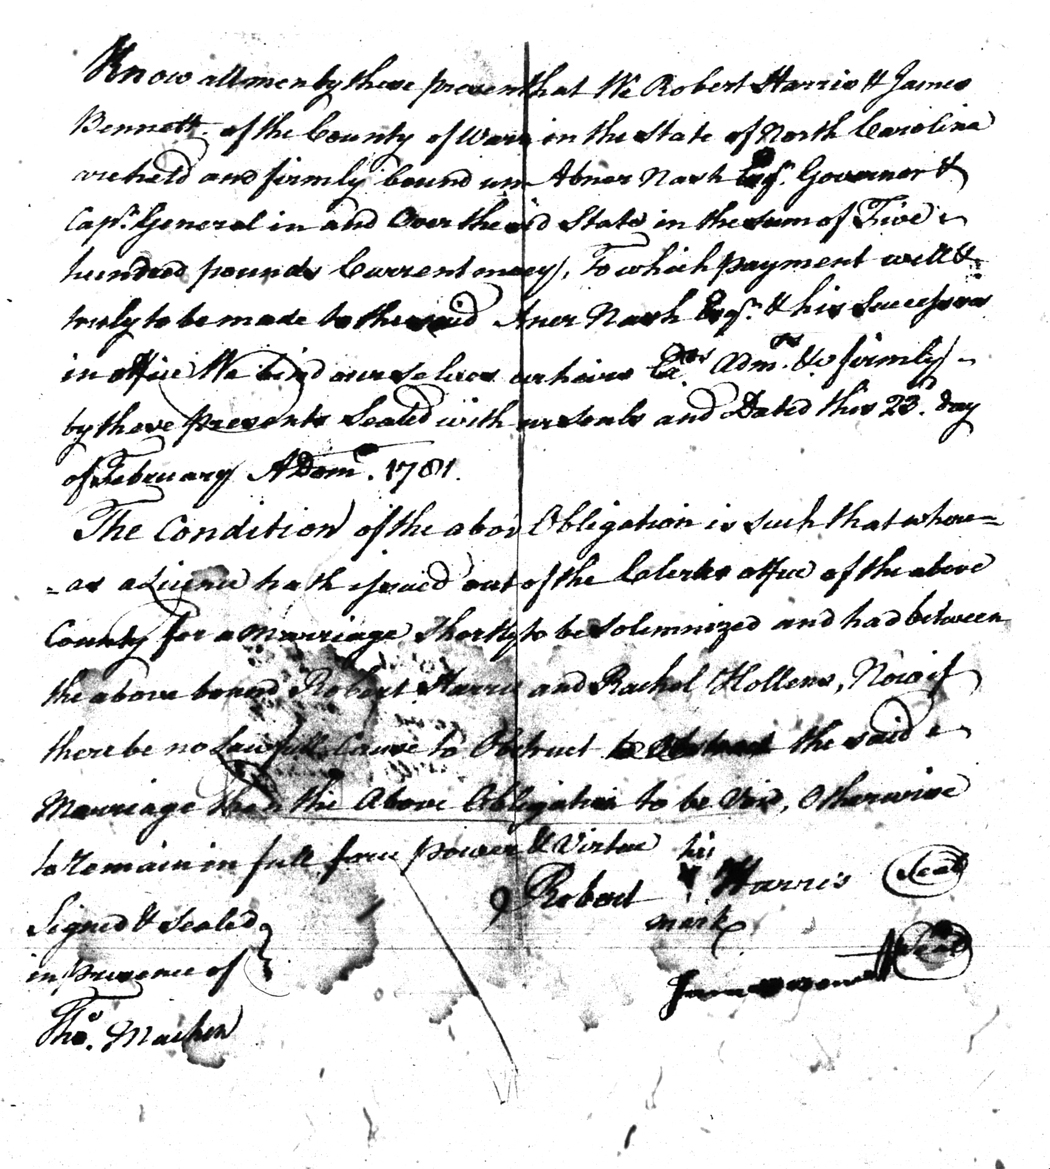 Know all men by these presents that We Robert Harris & James
Bennett. of the County of Warn in the State of North Carolina
are held and firmly bound un Abner Nash Esqr. Governor &
Capn. General in and Over the sd State in the sum of Five
hundred pounds Current money, To which payment well &
truly to be made to the said Aner Nash Esqr. & his Successors
in office We bind ourselves our heirs Exrs Admrs. &c firmly
by these presents Sealed with our Seals and Dated this 23d. day
of February ADom. 1781.
The Condition of the abov Obligation is such that where=
=as a Licence hath issued out of the Clerks office of the above
County for a Marriage Shortly to be solemnized and had between
the above bound Robert Harris and Rachel Hollems, Now if
there be no Lawfull Cause to Obstruct to Obstruct the said
Marriage then the Above Obligation to be Void, Otherwise
to remain in full force power & Virtue
his
Robert Harris Seal
mark
Signed & Sealed
in presence of
James Bennett Seal
Tho. Machen